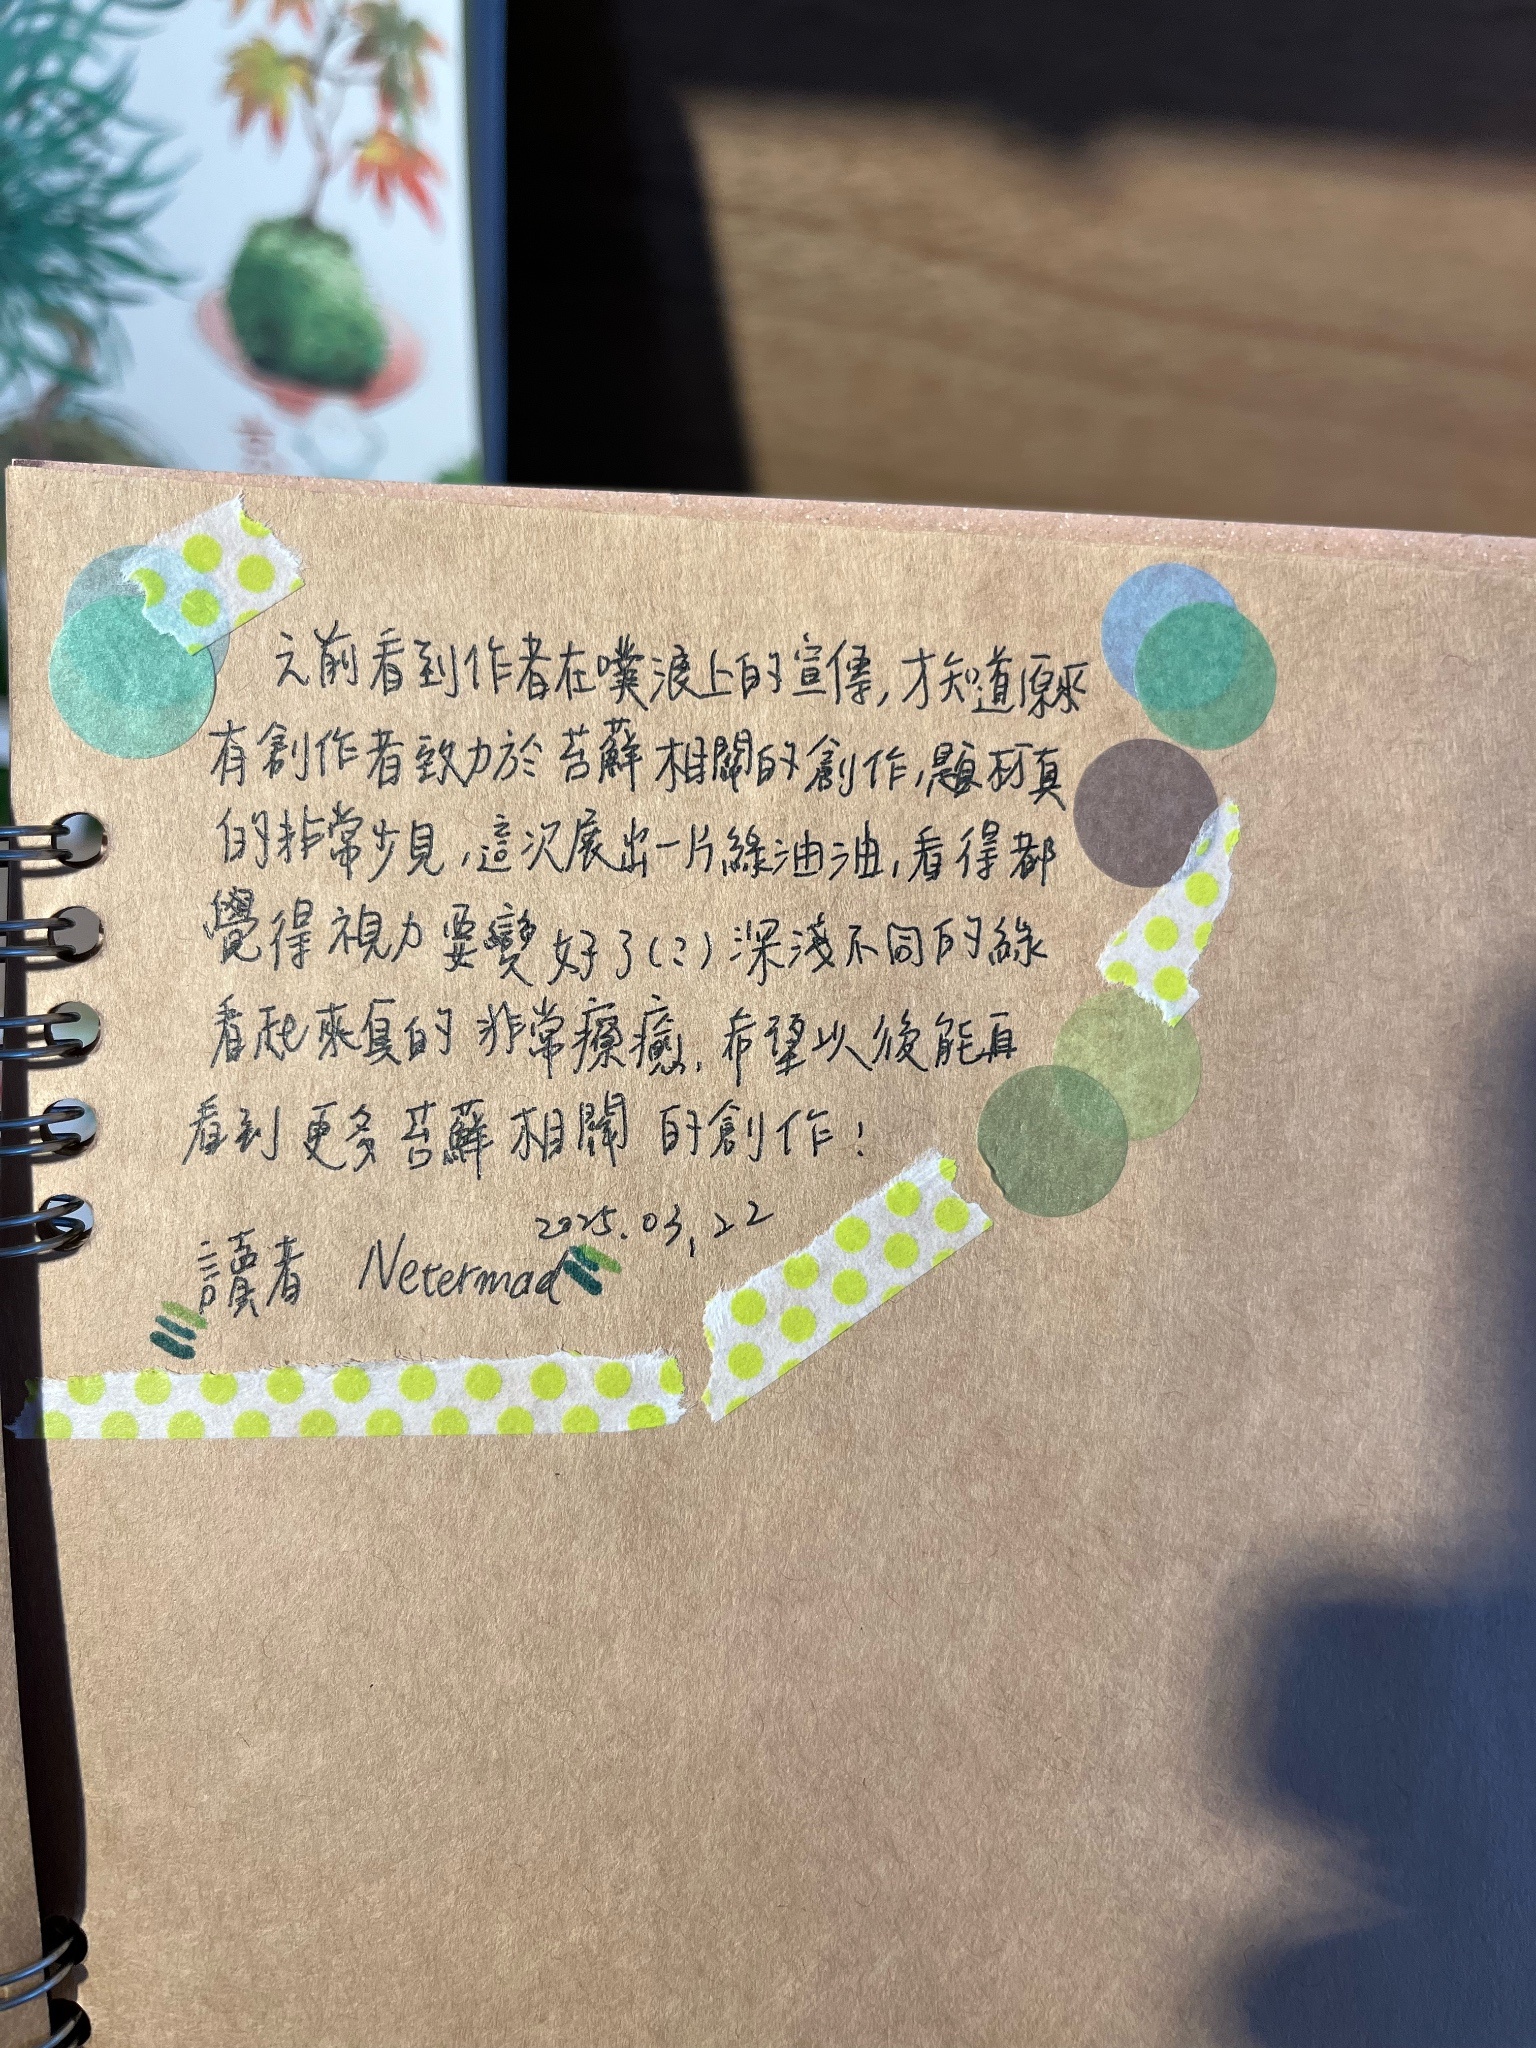 之前看到作者在噗浪上的宣傳,才知道原來
有創作者致力於苔蘚相關的創作,題材真
的非常少見,這次展出一片綠油油,看得都
覺得視力要變好了(?)深淺不同的綠
看起來真的非常療癒,希望以後能再
看到更多苔蘚相關的創作!
2025.03.22
讀者 Netermad